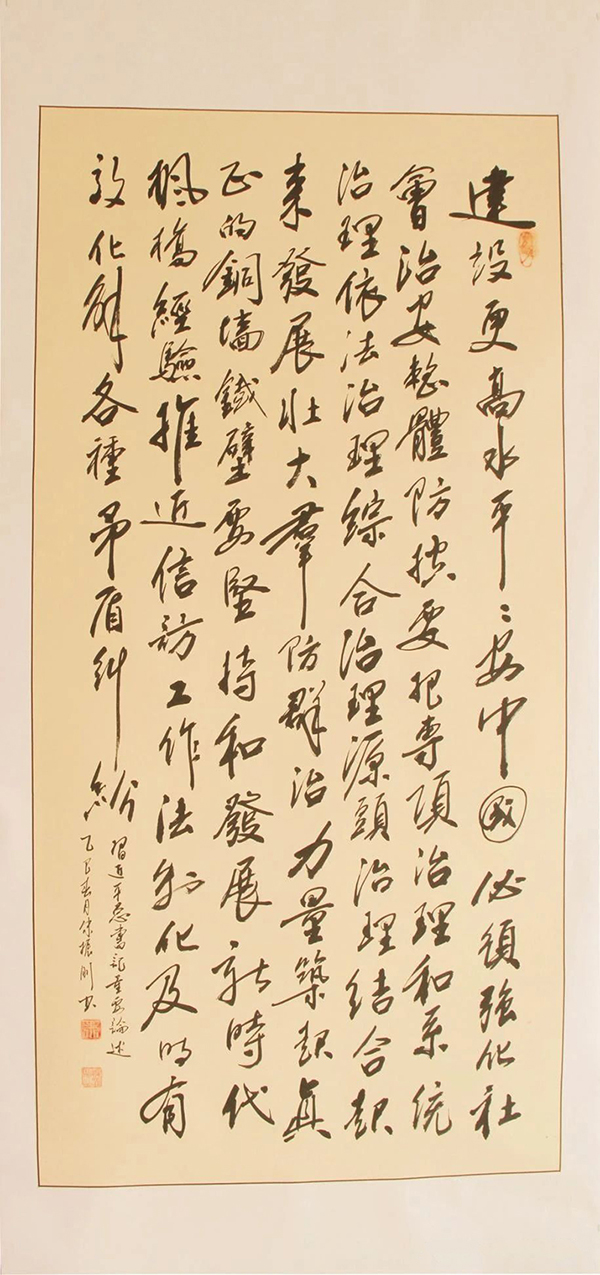 建設更高水平〻安中國必須強化社
會治安整體防控要把專項治理和系統
治理依法治理綜合治理源頭治理結合起
來發展壯大羣防群治力量築起真
正的銅墻鐵壁要堅持和發展新時代
楓橋經驗推近信訪工作法化及时有
效化解各種矛盾糾紛
習近平总書記重要論述
乙巳春月振刚书